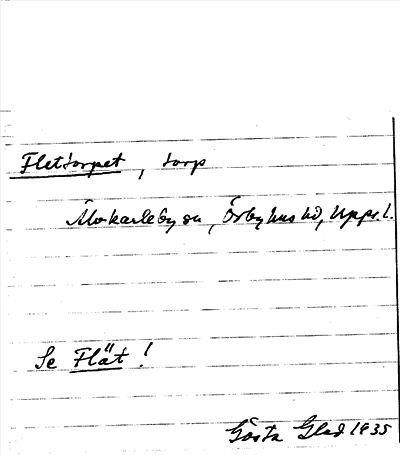 Flettorpet, torp
Älvkarleby sn, Örbyhus hd, Uppsl.
Se Flät!
Gösta Glad 1935